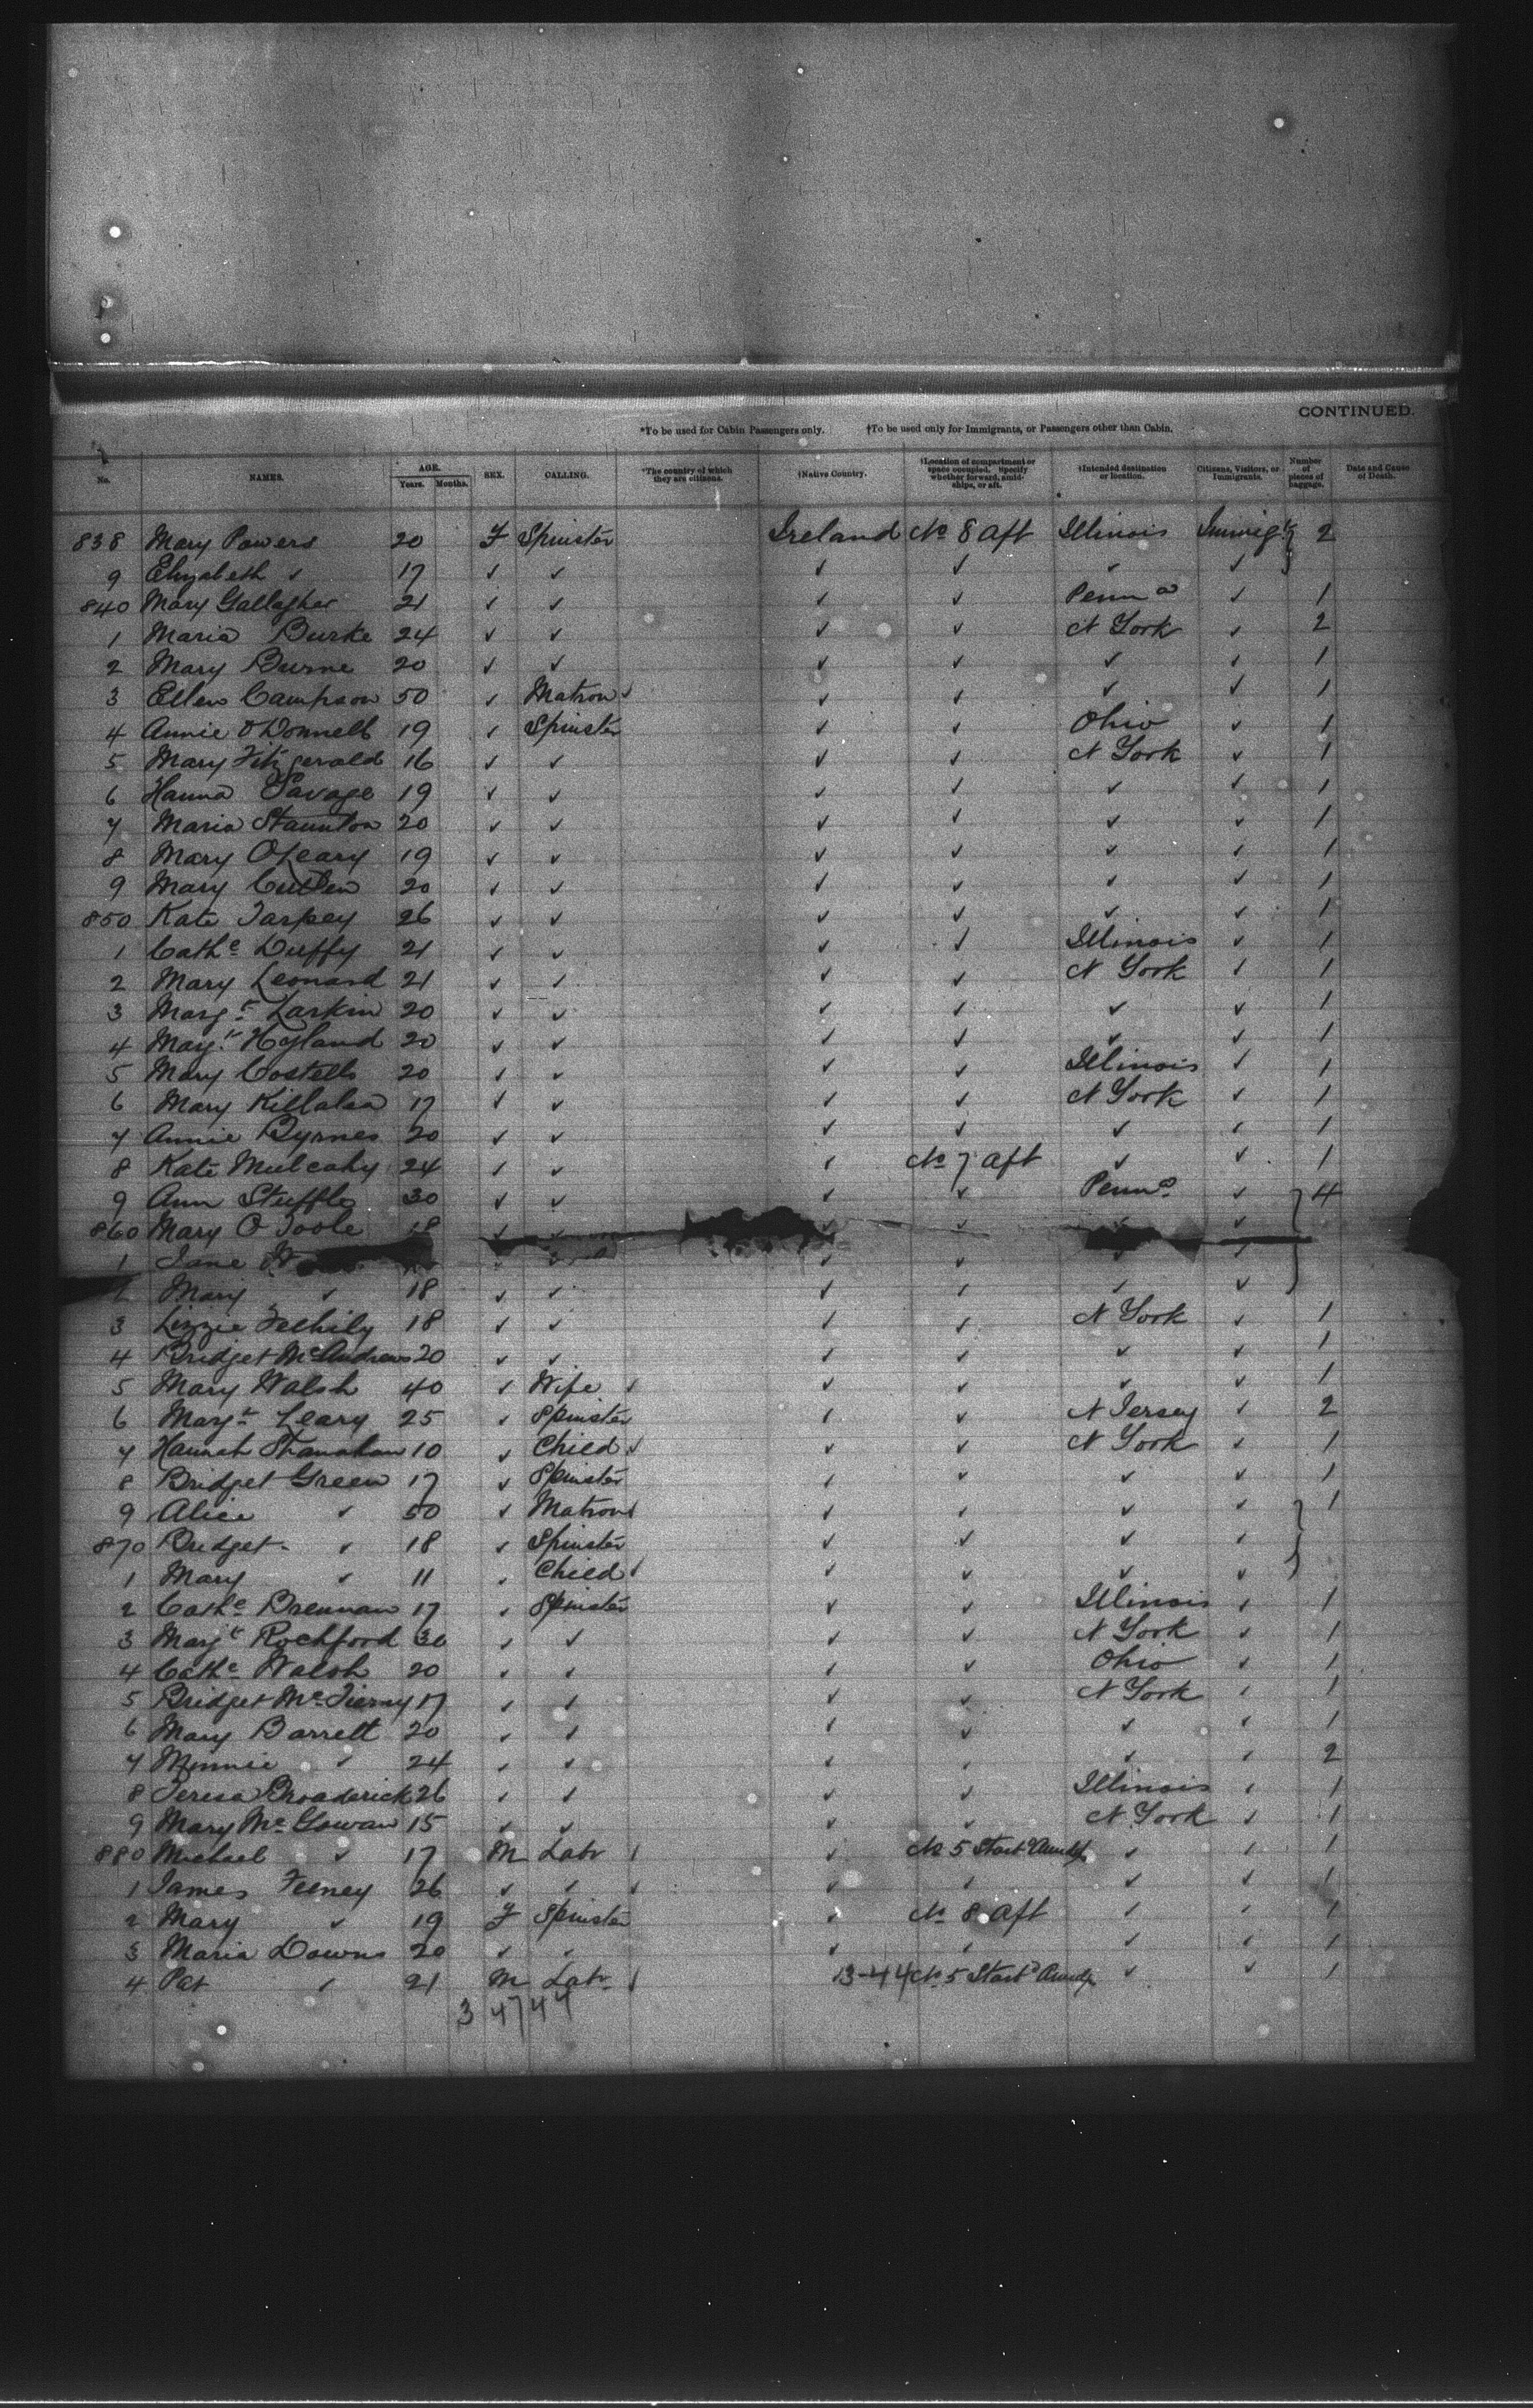 CONTINUED.
*To be used for Cabin Passengers only. †To be used only for Immigrants, or Passengers other than Cabin.
No. NAMES. AGE. Years. Months. SEX. CALLING. *The country of which they are citizens. †Native Country. †Location of compartment or space occupied. Specify whether forward, amidships, or aft. †Intended destination or location. Citizens, Visitors, or Immigrants. Number of pieces of baggage. Date and Cause of Death.
838 Mary Powers 20 F Spinster Ireland No 8 Aft Illinois Immigts 2
9 Elizabeth ✓ 17 ✓ ✓ ✓ ✓ ✓ ✓
840 Mary Gallagher 21 ✓ ✓ ✓ ✓ Penna ✓ 1
1 Maria Burke 24 ✓ ✓ ✓ ✓ N York ✓ 2
2 Mary Burne 20 ✓ ✓ ✓ ✓ ✓ ✓ 1
3 Ellen Campson 50 ✓ Matron ✓ ✓ ✓ ✓ ✓ 1
4 Annie O'Donnell 19 ✓ Spinster ✓ ✓ Ohio ✓ 1
5 Mary Fitzgerald 16 ✓ ✓ ✓ ✓ N York ✓ 1
6 Hanna Savage 19 ✓ ✓ ✓ ✓ ✓ ✓ 1
7 Maria Staunton 20 ✓ ✓ ✓ ✓ ✓ ✓ 1
8 Mary OLeary 19 ✓ ✓ ✓ ✓ ✓ ✓ 1
9 Mary 20 ✓ ✓ ✓ ✓ ✓ ✓ 1
850 Kate Tarpey 26 ✓ ✓ ✓ ✓ ✓ ✓ 1
1 Cathe Duffy 21 ✓ ✓ ✓ ✓ Illinois ✓ 1
2 Mary Leonard 21 ✓ ✓ ✓ ✓ N York ✓ 1
3 Margt Larkin 20 ✓ ✓ ✓ ✓ ✓ ✓ 1
4 Magt Hyland 20 ✓ ✓ ✓ ✓ ✓ ✓ 1
5 Mary Costello 20 ✓ ✓ ✓ ✓ Illinois ✓ 1
6 Mary Killalea 17 ✓ ✓ ✓ ✓ N York ✓ 1
7 Annie Byrnes 20 ✓ ✓ ✓ ✓ ✓ ✓ 1
8 Kate Mulcahy 24 ✓ ✓ ✓ No 7 Aft ✓ ✓ 1
9 Ann 30 ✓ ✓ ✓ ✓ Penna ✓ 4
860 Mary O Toole 18 ✓ ✓ ✓ ✓ ✓ ✓
1 Jane ✓ ✓ ✓ ✓ ✓ ✓
2 Mary ✓ 18 ✓ ✓ ✓ ✓ ✓ ✓
3 Lizzie Feehily 18 ✓ ✓ ✓ ✓ N York ✓ 1
4 Bridget McAndrews 20 ✓ ✓ ✓ ✓ ✓ ✓ 1
5 Mary Walsh 40 ✓ Wife ✓ ✓ ✓ ✓ ✓ 1
6 Magt Leary 25 ✓ Spinster ✓ ✓ N Jersey ✓ 2
7 Hannah Shanahan 10 ✓ Child ✓ ✓ ✓ N York ✓ 1
8 Bridget Green 17 ✓ Spinster ✓ ✓ ✓ ✓ 1
9 Alice ✓ 50 ✓ Matron ✓ ✓ ✓ ✓ ✓ 1
870 Bridget ✓ 18 ✓ Spinster ✓ ✓ ✓ ✓
1 Mary ✓ 11 ✓ Child ✓ ✓ ✓ ✓ ✓
2 Cathe Brennan 17 ✓ Spinster ✓ ✓ Illinois ✓ 1
3 Magt Rochford 30 ✓ ✓ ✓ ✓ N York ✓ 1
4 Cathe Walsh 20 ✓ ✓ ✓ ✓ Ohio ✓ 1
5 Bridget McTierny 17 ✓ ✓ ✓ ✓ N York ✓ 1
6 Mary Barrett 20 ✓ ✓ ✓ ✓ ✓ ✓ 1
7 Minnie ✓ 24 ✓ ✓ ✓ ✓ ✓ ✓ 2
8 Teresa Broaderick 26 ✓ ✓ ✓ ✓ Illinois ✓ 1
9 Mary McGowan 15 ✓ ✓ ✓ ✓ N York ✓ 1
880 Michael ✓ 17 M Labr ✓ ✓ No 5 ✓ ✓ 1
1 James Feeney 26 ✓ ✓ ✓ ✓ ✓ ✓ ✓ 1
2 Mary ✓ 19 F Spinster ✓ No 8 Aft ✓ ✓ 1
3 Maria Downs 20 ✓ ✓ ✓ ✓ ✓ ✓ 1
4 Pat ✓ 21 M Labr ✓ 13-44 No 5 ✓ ✓ 1
3 4744